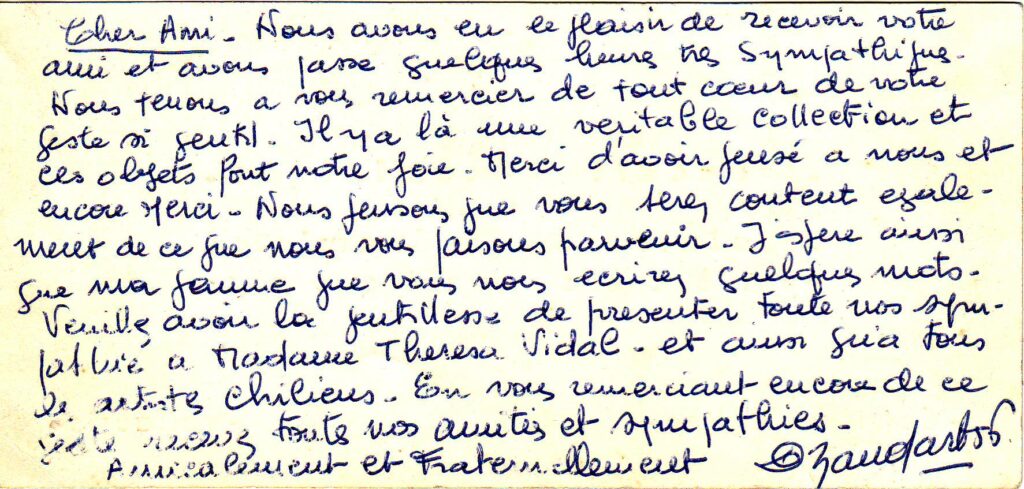 Cher Ami - Nous avons eu le plaisir de recevoir votre
ami et avons passe quelques heures tres Sympathique.
Nous tenons a vous remercier de tout cœur de votre
geste si gentil. Il y a là une veritable collection et
ces objets font notre joie. Merci d'avoir pensé a nous et
encore Merci - Nous pensons que vous serez content egale-
ment de ce que nous vous faisons parvenir - J'espere ainsi
que ma femme que vous nous ecrirez quelques mots.
Veuillez avoir la gentillesse de presenter toute nos sym-
pathie a Madame Theresa Vidal - et ainsi qu'a tous
les artistes Chiliens. En vous remerciant encore de ce
geste recevez toutes nos amities et sympathies.
Amicalement et Fraternellement